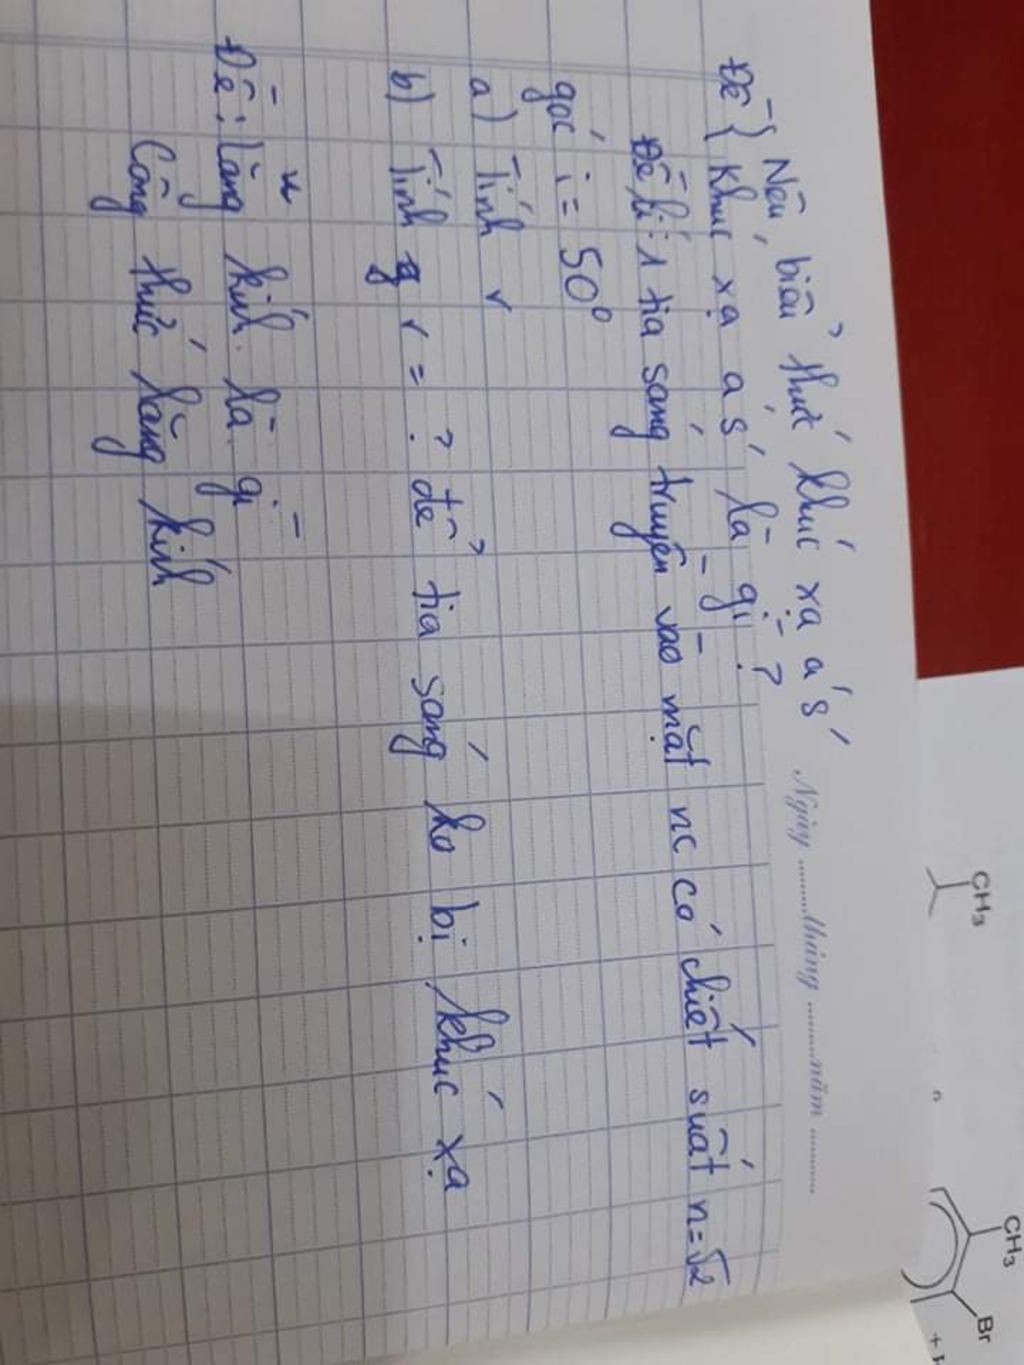 Ngày ..........tháng ..........năm ..........
Nêu biểu thức khúc xạ a's'
Đề { Khúc xạ a s' là gì ?
Đề lí: 1 tia sáng truyền vào mặt nc có chiết suất n=√2
góc i = 50°
a) Tính r
b) Tính r = ? để tia sáng ko bị khúc xạ
Đề : lăng kính là gì
Công thức lăng kính
CH₃
CH₃
Br